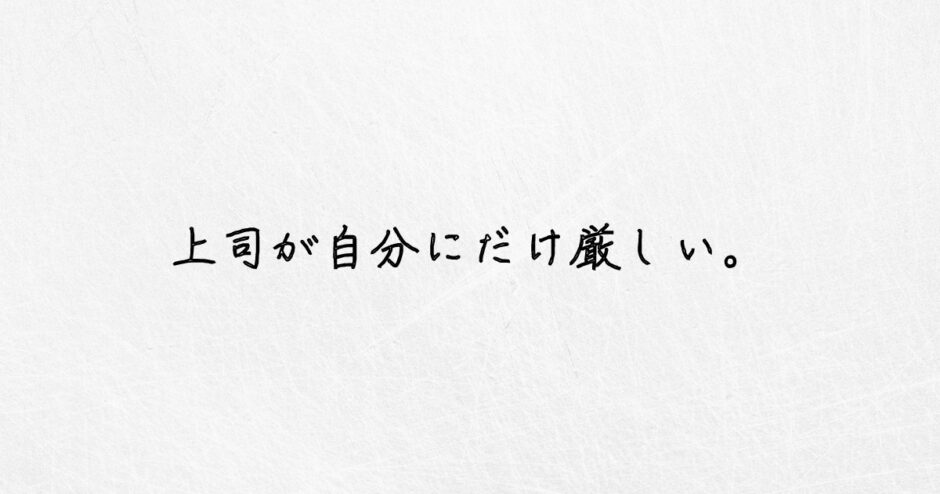 上司が自分にだけ厳しい。